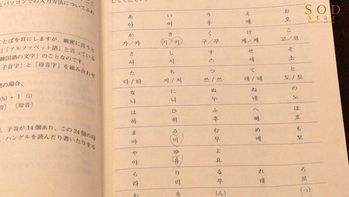 SOD
star
とパソコンでの入力方法についてふれ
ことばを耳にしますが、厳密に言うと
「アルファベット」と言っている
韓国語の文字」のことなのです。
子音字」と「母音字」を組み合わせ
の場合、
(h) + ㅣ (i)
(母音)
、子音が 14 個あり、この 24 個の母
ば、ハングルを読んだり書いたりする
あ い う え お
아 이 우 에 오
か き く け こ
가/카 기/키 구/쿠 게/케 고/코
さ し す せ そ
사 시 스 세 소
た ち つ て と
다/타 지/치 쓰/쓰 데/테 도/토
な に ぬ ね の
나 니 누 네 노
は ひ ふ へ ほ
하 히 후 헤 호
ま み む め も
마 미 무 메 모
や ゆ よ
야 유 요
ら り る れ ろ
라 리 루 레 로
わ を (ん) (っ)